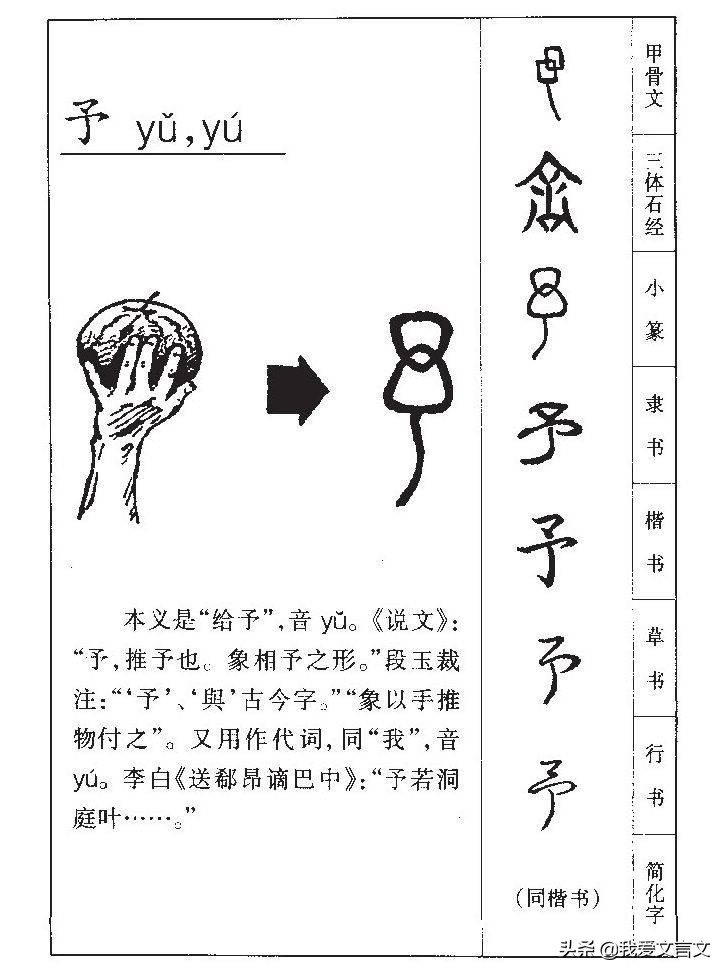 予 yǔ,yú
本义是“给予”,音 yǔ。《说文》:
“予,推予也。象相予之形。”段玉裁
注:“‘予’、‘與’古今字。”“象以手推
物付之”。又用作代词,同“我”,音
yú。李白《送郗昂谪巴中》:“予若洞
庭叶……。”
甲骨文
三体石经
小篆
予
隶书
予
楷书
予
草书
予
行书
(同楷书)
简化字
头条 @我爱文言文